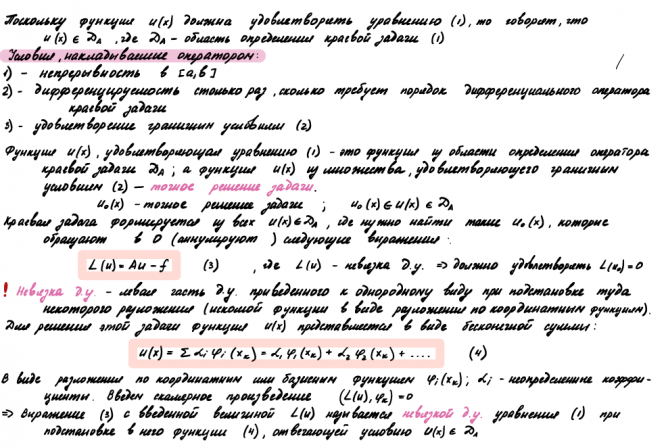 Поскольку функция u(x) должна удовлетворять уравнению (1), то говорят, что
u(x) ∈ D_A, где D_A - область определения краевой задачи (1)
Условия, накладываемые оператором:
1) - непрерывность в [a, b]
2) - дифференцируемость столько раз, сколько требует порядок дифференциального оператора
краевой задачи
3) - удовлетворение граничным условиям (2)
Функция u(x), удовлетворяющая уравнению (1) - это функция из области определения оператора
краевой задачи D_A; а функция u(x) из множества, удовлетворяющего граничным
условиям (2) — точное решение задачи.
u₀(x) - точное решение задачи ; u₀(x) ∈ u(x) ∈ D_A
Краевая задача формируется из всех u(x) ∈ D_A, где нужно найти такие u₀(x), которые
обращают в 0 (аннулируют) следующие выражение:
L(u) = Au - f (3) , где L(u) - невязка д.у. => должно удовлетворять L(u₀) = 0
! Невязка д.у. - левая часть д.у. приведенного к однородному виду при подстановке туда
некоторого разложения (искомой функции в виде разложения по координатным функциям).
Для решения этой задачи функция u(x) представляется в виде бесконечной суммы:
u(x) = Σ αᵢ φᵢ (xₖ) = α₁ φ₁ (xₖ) + α₂ φ₂ (xₖ) + .... (4)
В виде разложения по координатным или базисным функциям φᵢ(xₖ); αᵢ - неопределенные коэффи-
циенты. Введем скалярное произведение (L(u), φₖ) = 0
=> Выражение (3) с введенной величиной L(u) называется невязкой д.у. уравнения (1) при
подстановке в него функции (4), отвечающей условию u(x) ∈ D_A